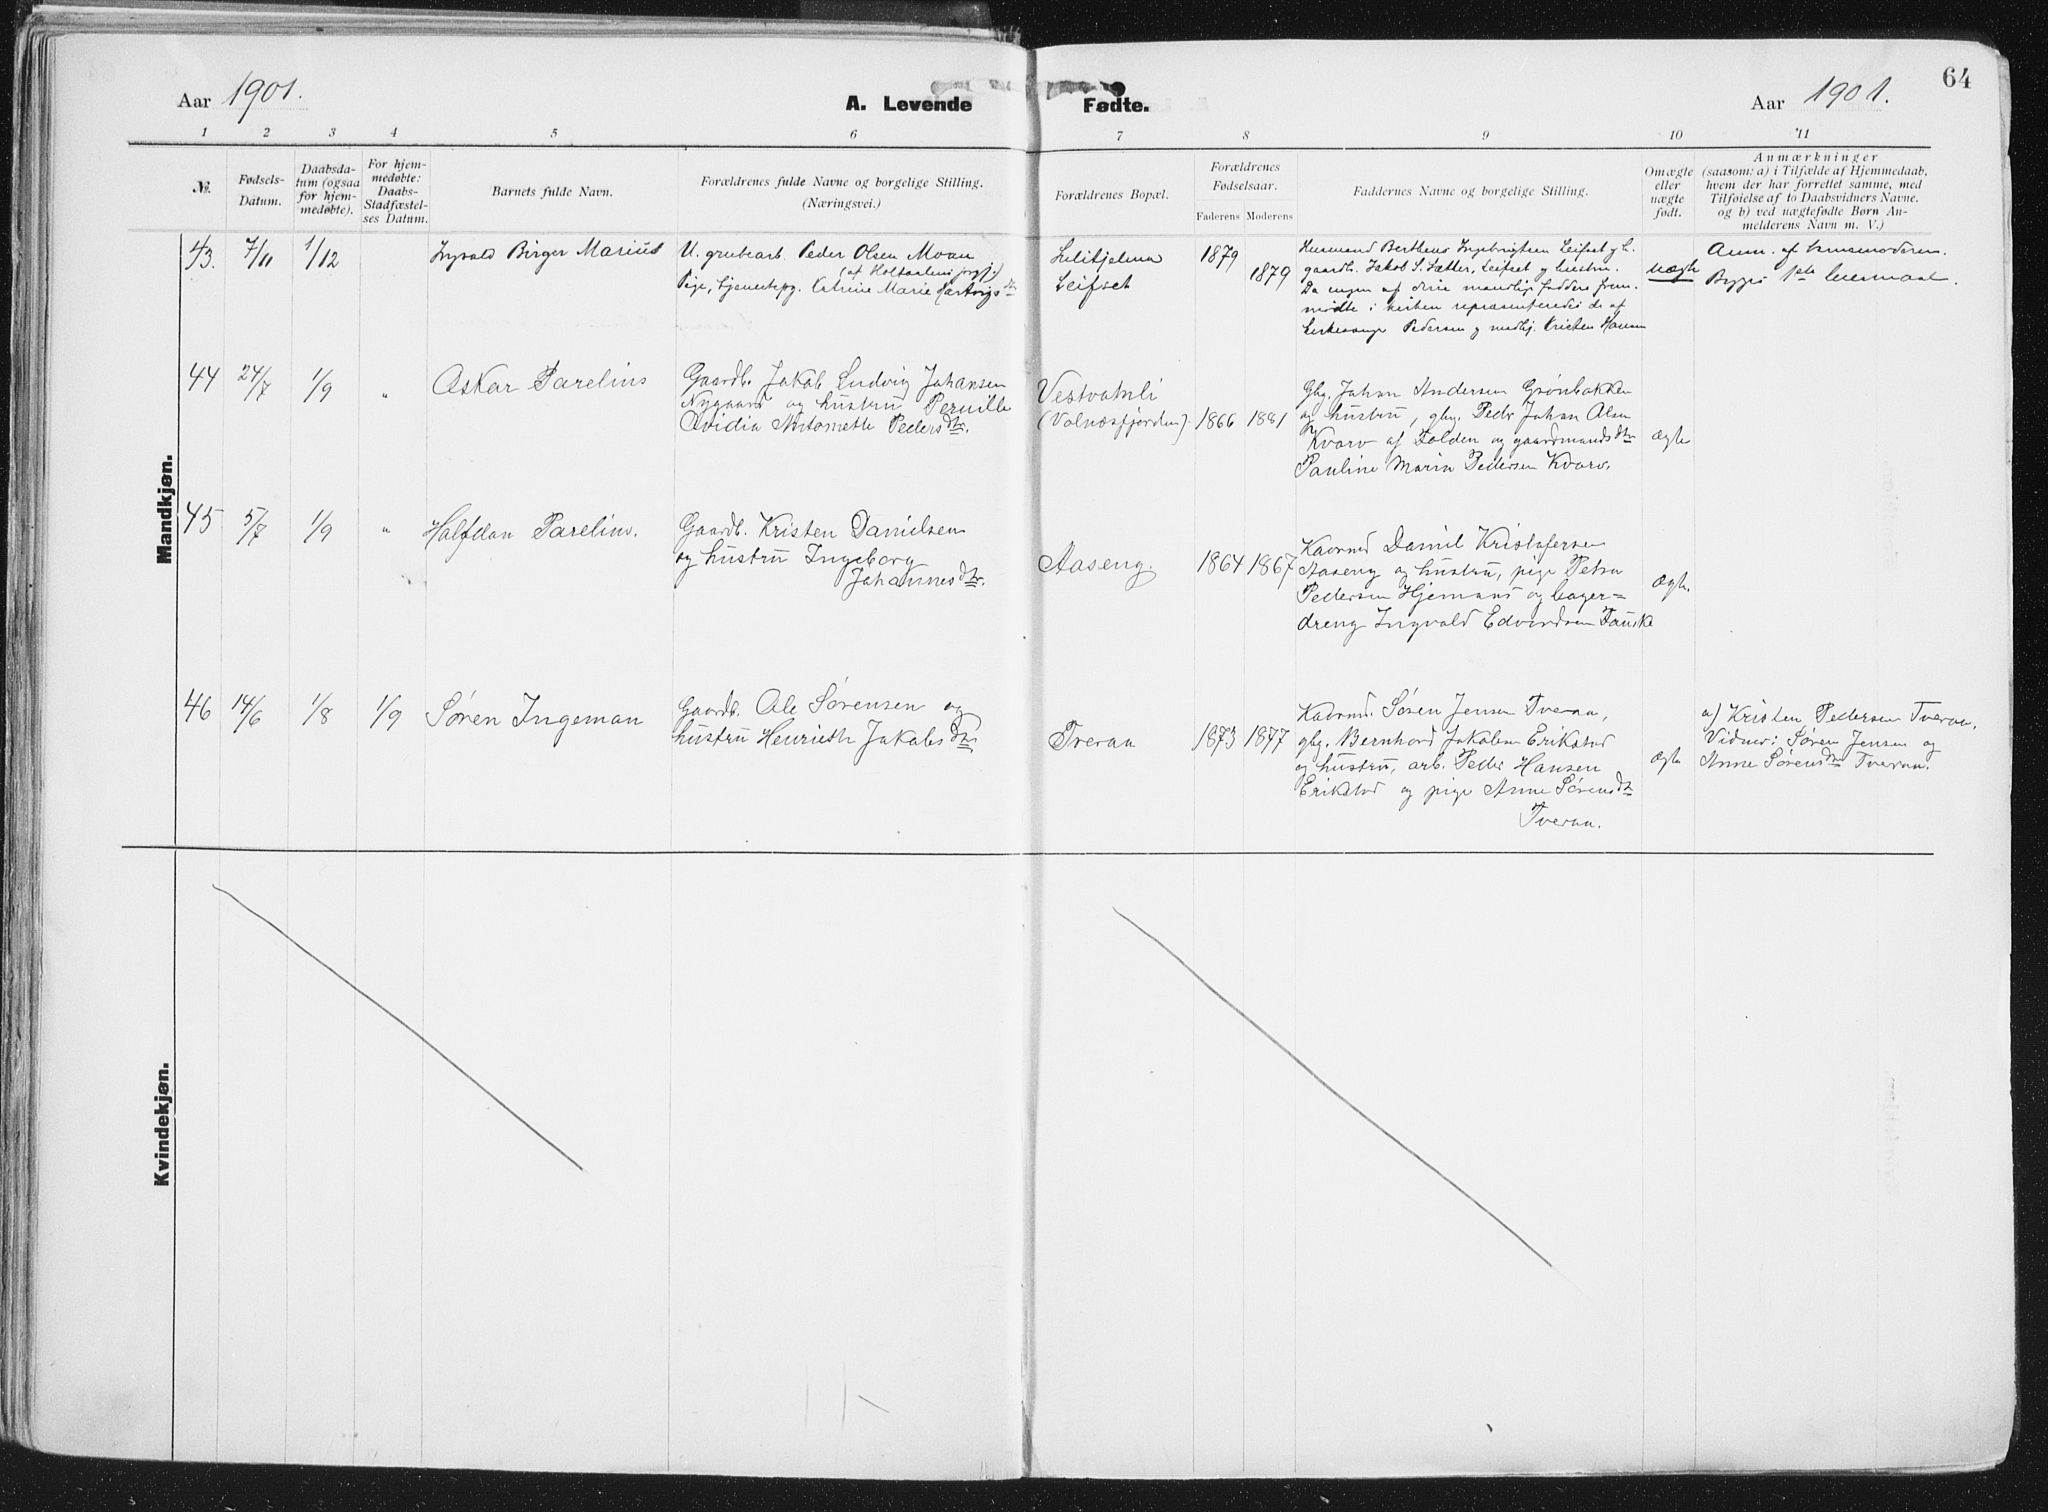 64
Aar 1901.
A. Levende Fødte.
Aar 1901.
1 2 3 4 5 6 7 8 9 10 11
№.
Fødsels-
Datum.
Daabsda-
tum (ogsaa
for hjem-
medøbte).
For hjem-
medøbte:
Daabs-
Stadfæstel-
ses Datum.
Barnets fulde Navn.
Forældrenes fulde Navne og borgelige Stilling.
(Næringsvei.)
Forældrenes Bopæl.
Forældrenes
Fødselsaar.
Faderens Moderens
Faddernes Navne og borgelige Stilling.
Omægte
eller
nægte
født.
Anmærkninger
(saasom: a) i Tilfælde af Hjemmedaab,
hvem der har forrettet samme, med
Tilføielse af to Daabsvidners Navne.
og b) ved uægtefødte Børn An-
melderens Navn m. V.)
Mandkjøn.
43. 7/11 1/12
Ingvald Birger Marius
U. grubearb. Peder Olsen Moan
(af Holtaalens prgj.)
Pige, tjenestepg. Catrine Marie Hartvigsdtr
Sulitjelma
Leifset
1879
1879
Husmand Bertheus Ingebrigtsen Leifset g h.
gaardb. Jakob S. Sætter, Leifset g hustru.
Da ingen af disse mandlige faddere frem-
mødte i kirken repræsenteredes de af
kirkesanger Pedersen g medhj. Kristen Hansen
uægte
Anm. af barnemoderen.
Begges 1ste leiermaal.
44 24/7 1/9 "
Oskar Parelius
Gaardb. Jakob Ludvig Johansen
Nygaard og hustru Pernille
Ovidia Antonette Pedersdtr.
Vestvatnli
(Valnæsfjorden).
1866 1881
Gbg. Johan Andersen Grønbakken
og hustru, gbg. Peder Johan Olsen
Kvarv af Folden og gaardmandsdtr
Pauline Maria Pedersen Kvarv.
ægte
45 5/7 1/9 "
Halfdan Parelius.
Gaardb. Kristen Danielsen
og hustru Ingeborg
Johannesdtr.
Aaseng.
1864 1867
Kaarmd Daniel Kristofersen
Aaseng og hustru, pige Petra
Pedersen Hjemaas og bager=
dreng Ingvald Edvardsen Fauske
ægte.
46 14/6 1/8 1/9
Søren Ingeman
Gaardb. Ole Sørensen og
hustru Henriette Jakobsdtr
Tveraa
1873 1877
Kaarmd. Søren Jensen Tveraa,
gbg. Bernhard Jakobsen Erikstad
og hustru, arb. Peder Hansen
Erikstad og pige Anne Sørensdtr
Tveraa.
ægte
a) Kristen Pedersen Tveraa.
Vidner: Søren Jensen og
Anne Sørensdtr Tveraa.
Kvindekjøn.